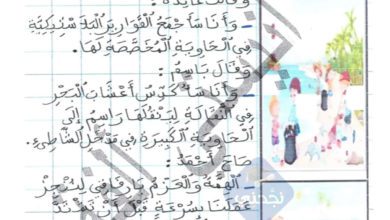 وَقَالَتْ عَايِدَةُ :
– وَأَنَا سَأَجْمَعُ ٱلْقَوَارِيرَ ٱلْبِلَاسْتِيكِيَّةَ
فِي ٱلْحَاوِيَةِ ٱلْمُخَصَّصَةِ لَهَا.
وَقَالَ بَاسِمٌ :
– وَأَنَا سَأُكَدِّسُ أَعْشَابَ ٱلْبَحْرِ
فِي ٱلنَّقَّالَةِ لِيَنْقُلَهَا رَاسِمٌ إِلَى
ٱلْحَاوِيَةِ ٱلْكَبِيرَةِ فِي مَدْخَلِ ٱلشَّاطِئِ.
صَاحَ أَحْمَدُ :
– ٱلْهِمَّةَ وَٱلْعَزْمَ يَا رِفَاقِي لِنُنْجِزَ
عَمَلَنَا بِسُرْعَةٍ قَبْلَ أَنْ
نجحني